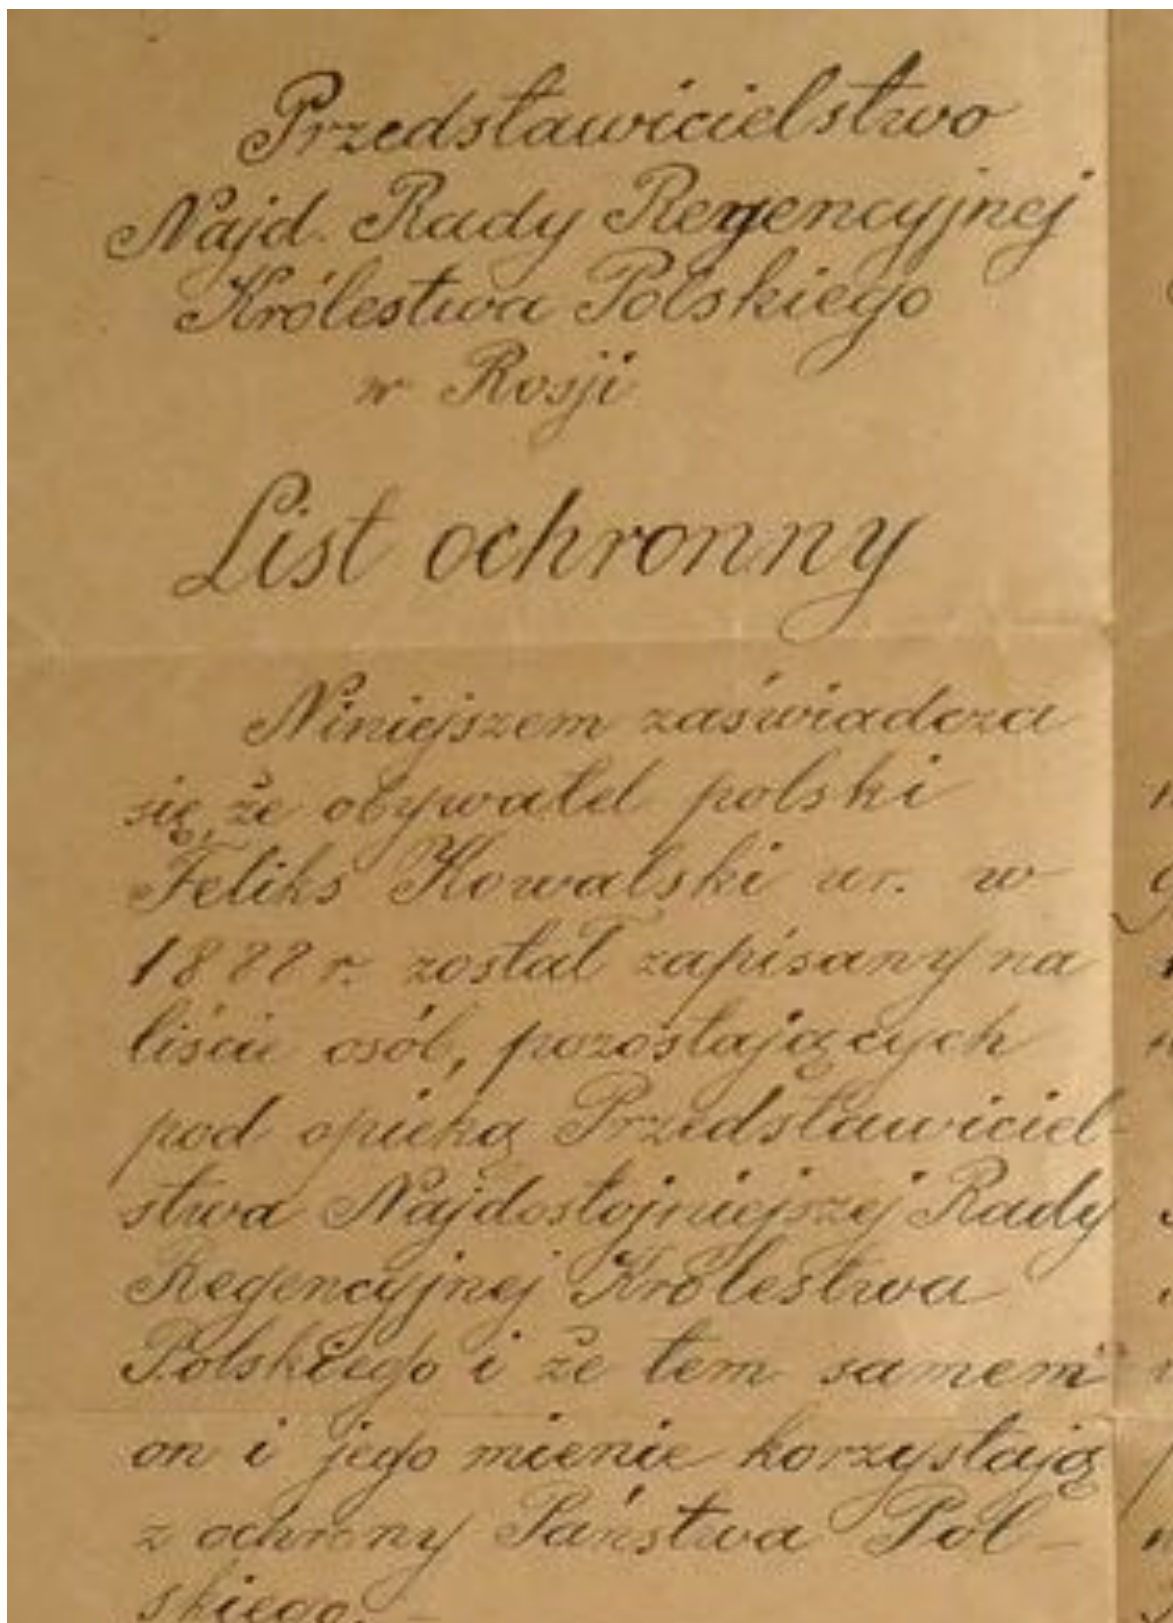 Przedstawicielstwo
Najd. Rady Regencyjnej
Królestwa Polskiego
w Rosji
List ochronny
Niniejszem zaświadcza
się, że obywatel polski
Feliks Kowalski ur. w
1888 r. został zapisany na
liście osób, pozostających
pod opieką Przedstawiciel-
stwa Najdostojniejszej Rady
Regencyjnej Królestwa
Polskiego i że tem samem
on i jego mienie korzystają
z ochrony Państwa Pol-
skiego. -